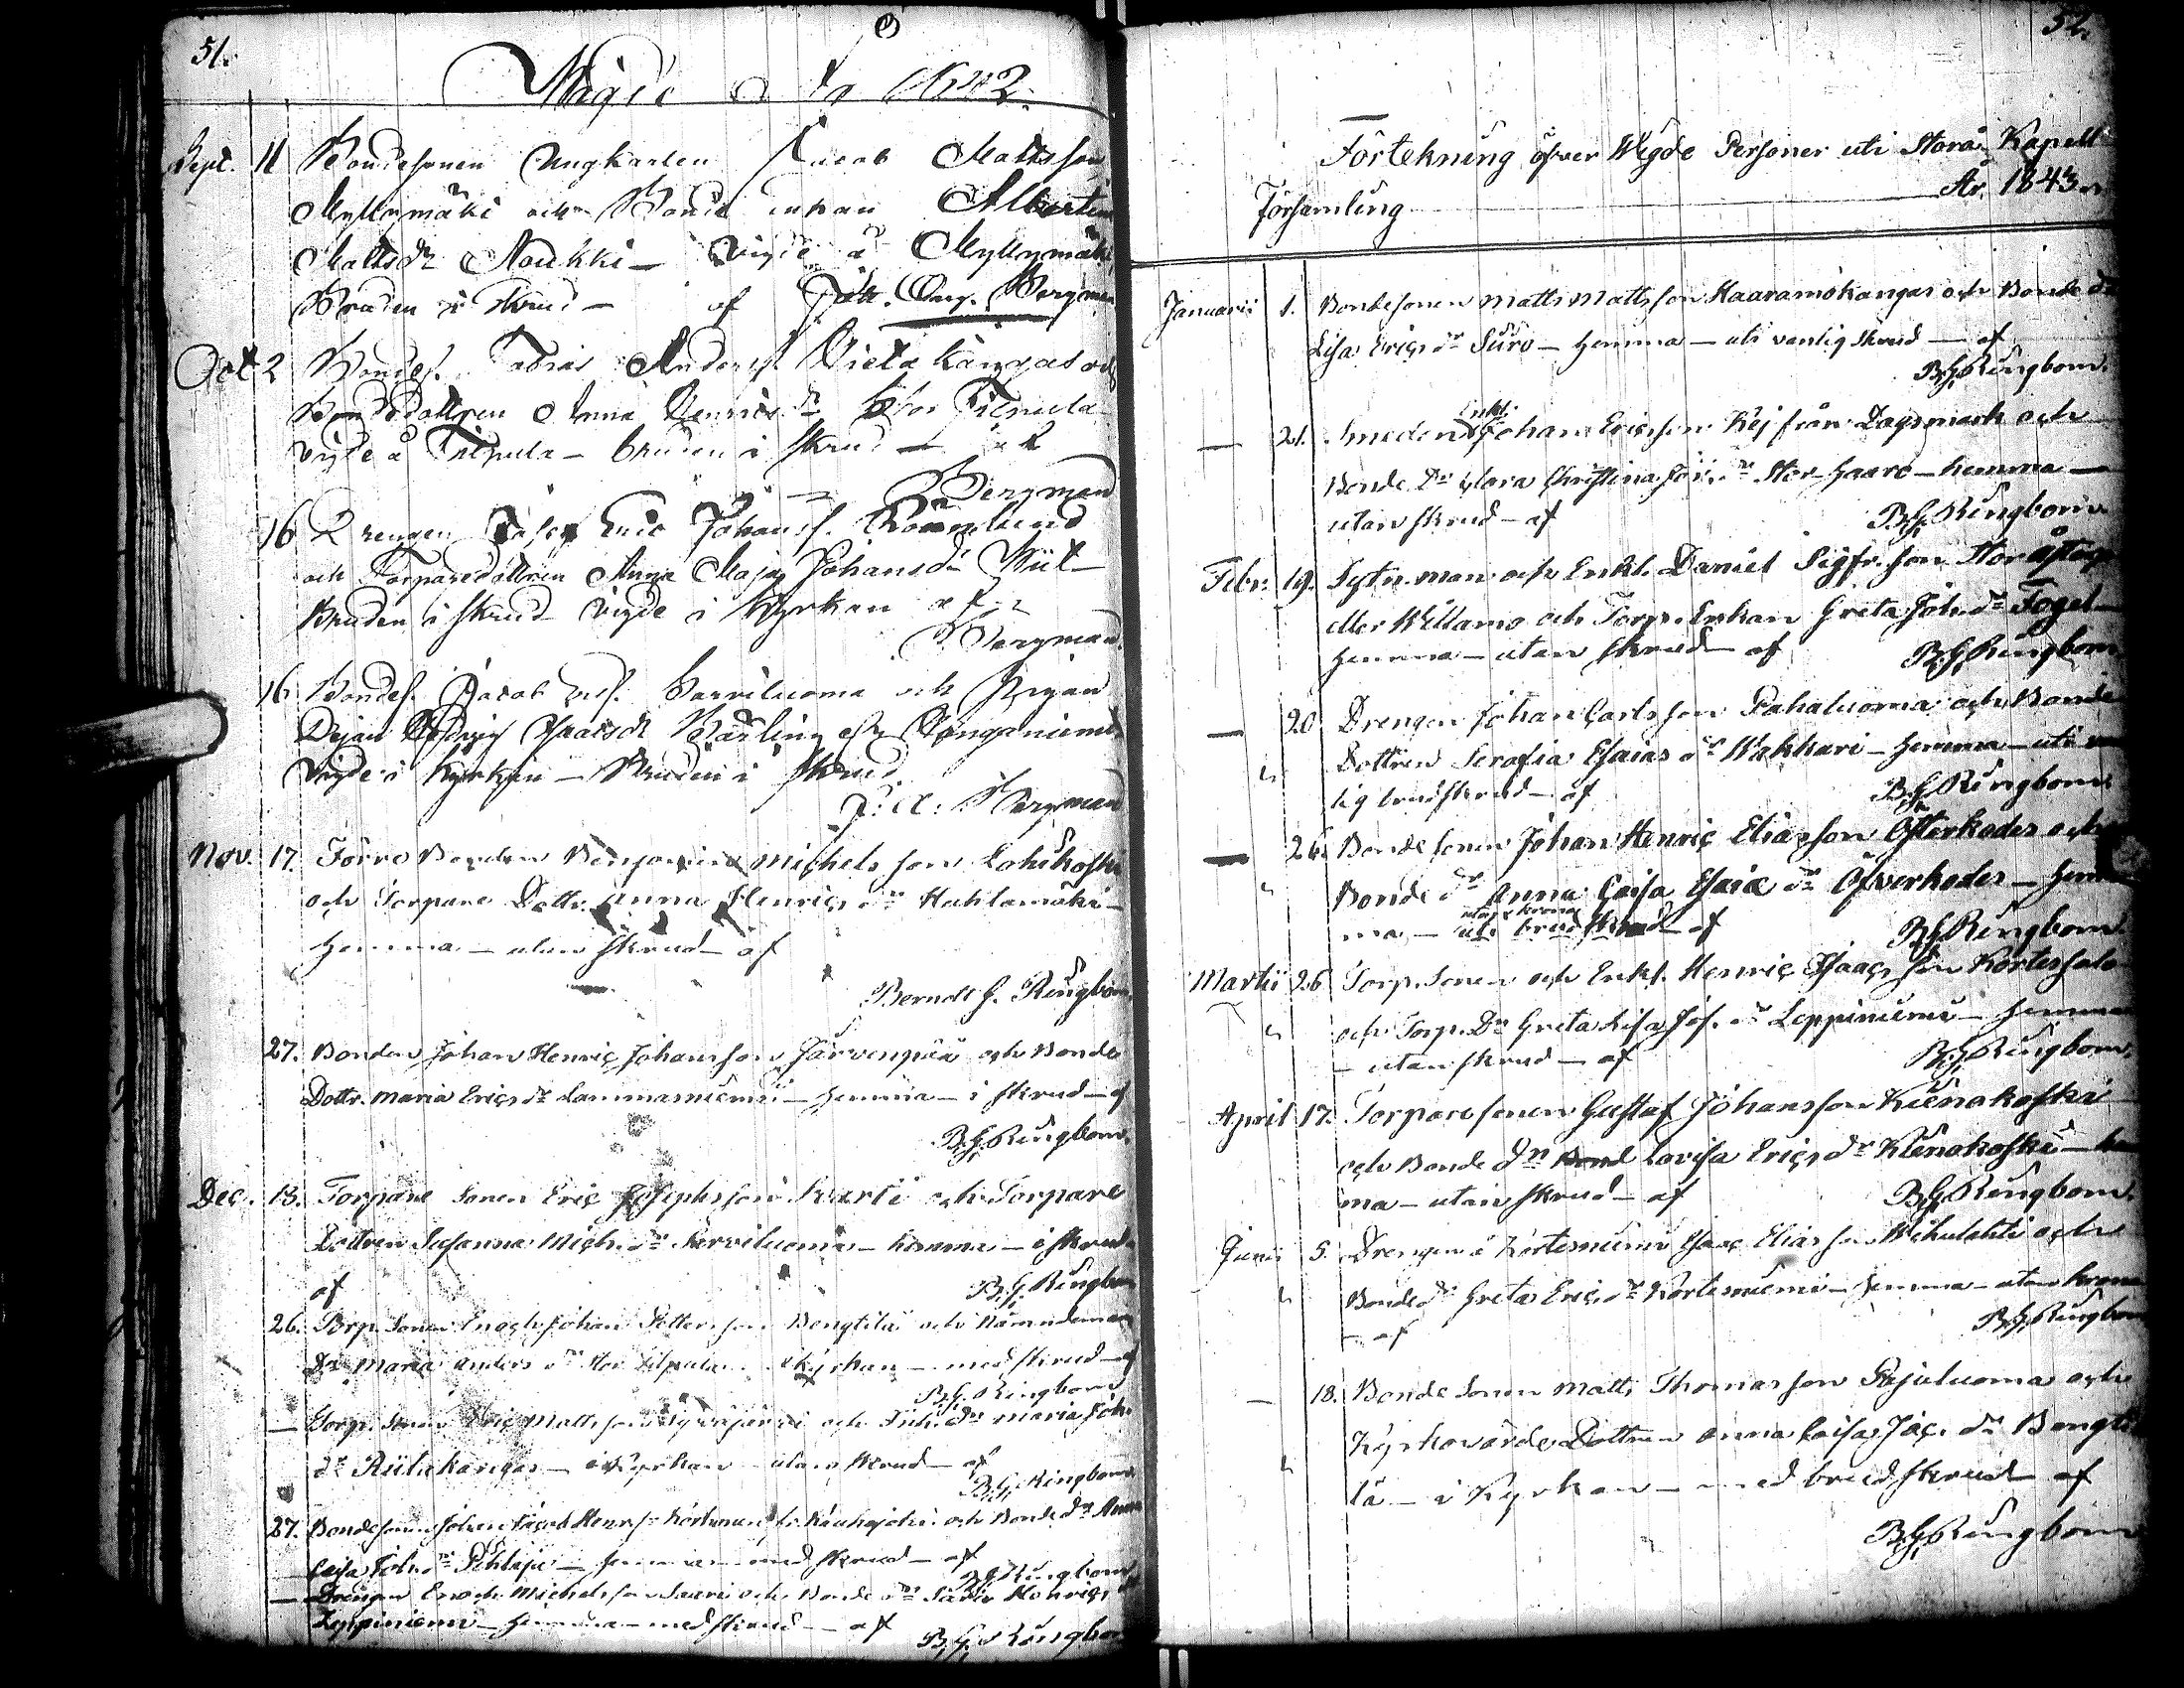 51.
Vigde År 1842.
Sept. 11 Bondesonen Ungkarlen Jacob Mattsson
Myllymäki och Bonde enkan Albertina
Mattsdr Noukki — Vigde å Myllymäki
Bruden i skrud — af Joh. Bergman
Oct 2 Bondes. Tobias Anders. kangas och
Bondedottren Anna Henricsdr Stor Filpula
Vigde å Filpula — bruden i skrud — af
Bergman
16 Drengen Johanss.
och Torparedottren Anna Maja Johansdr
Bruden i skrud Vigde i Kyrkan af
Bergman
16 Bondes. Jacob Sarviluoma och Pigan
Isaacsdr
Vigde i Kyrkan — Bruden i skrud
Bergman
Nov. 17. Förre Bonden Benjamin Michelsson Lohikoski
och Torpare Dottr. Anna Henrics dr Kahlamäki —
hemma — utan skrud — af
Berndt G. Ringbom.
27. Bonden Johan Henric Johansson Järvenpää och Bonde
Dottr. Maria Erics dr Lammasniemi — hemma — i skrud — af
B. G. Ringbom.
Dec. 13. Torpare Sonen Eric Josephsson och Torpare
Dottren Susanna Mich. dr Sarviluoma — hemma — i skrud
af B. G. Ringbom
26. Torp. Sonen Enoch Johan Pettersson Bengtilä och Nämndeman
Dr Maria Anders dr Stor Filpula i Kyrkan — med skrud — af
B. G. Ringbom
— Torp. Sonen Eric Mattsson och dr Maria Joh.
dr kangas — i Kyrkan utan skrud — af
B. G. Ringbom
27. Bondesonen Johan Jacob Henr. och Bonde dr Anna
Caisa Joh. dr Pihlaja — hemma — med skrud — af
B. G. Ringbom
— Drengen Enoch Michelsson Saari och Bonde dr Henrics
Leppiniemi — hemma — med skrud — af B. G. Ringbom
52.
Förtekning öfver Wigde Personer uti Storå Kapell
Församling År. 1843.
Januarii 1. Bondesonen Matts Mattsson Haaramökangas och Bonde dr
Lisa Erics dr Suro — hemma — uti vanlig skrud — af
B. G. Ringbom.
— 21. Smeden Enkl. Johan Ericsson Kej från Dagsmark och
Bonde Dr Clara Christina dr Stor-haaro — hemma —
utan skrud — af B. G. Ringbom
Febr. 19. man och Enkl. Daniel Sigfr. son
eller Willamo och Torp. Enkan Greta Joh. dr Fogel —
hemma — utan skrud — af B. G. Ringbom
— 20 Drengen Johan Carlsson Pahaluoma och Bonde
Dottren Serafia Esaias dr Wakkuri — hemma — uti
lig brudskrud — af B. G. Ringbom.
— 26. Bonde sonen Johan Henric Eliasson Öfverkoder och
Bonde dr Anna Caisa Esaiæ dr Öfverkoder — hem
ma — utan krona uti brudskrud — af B. G. Ringbom
Martii 26 Torp. Sonen och Enkl. Henric Isaacsson Kortessalo
och Torp. Dr Greta Lisa Jos. dr Leppiniemi — hemma
— utan skrud — af B. G. Ringbom.
April 17. Torparesonen Gustaf Johansson Kienokoski
och Bonde dr Lovisa Erics dr Kienokoski — hem
ma — utan skrud — af B. G. Ringbom.
Junii 5. Drengen å Kortesniemi Isaac Eliasson och
Bonde dr Greta Erics dr Kortesniemi — hemma — utan krona
— af B. G. Ringbom
— 18. Bonde Sonen Matts Thomasson Pajuluoma och
Kyrkovärds Dottren Anna Caisa Jac. dr Bengti
lä — i Kyrkan — med brudskrud af
B. G. Ringbom